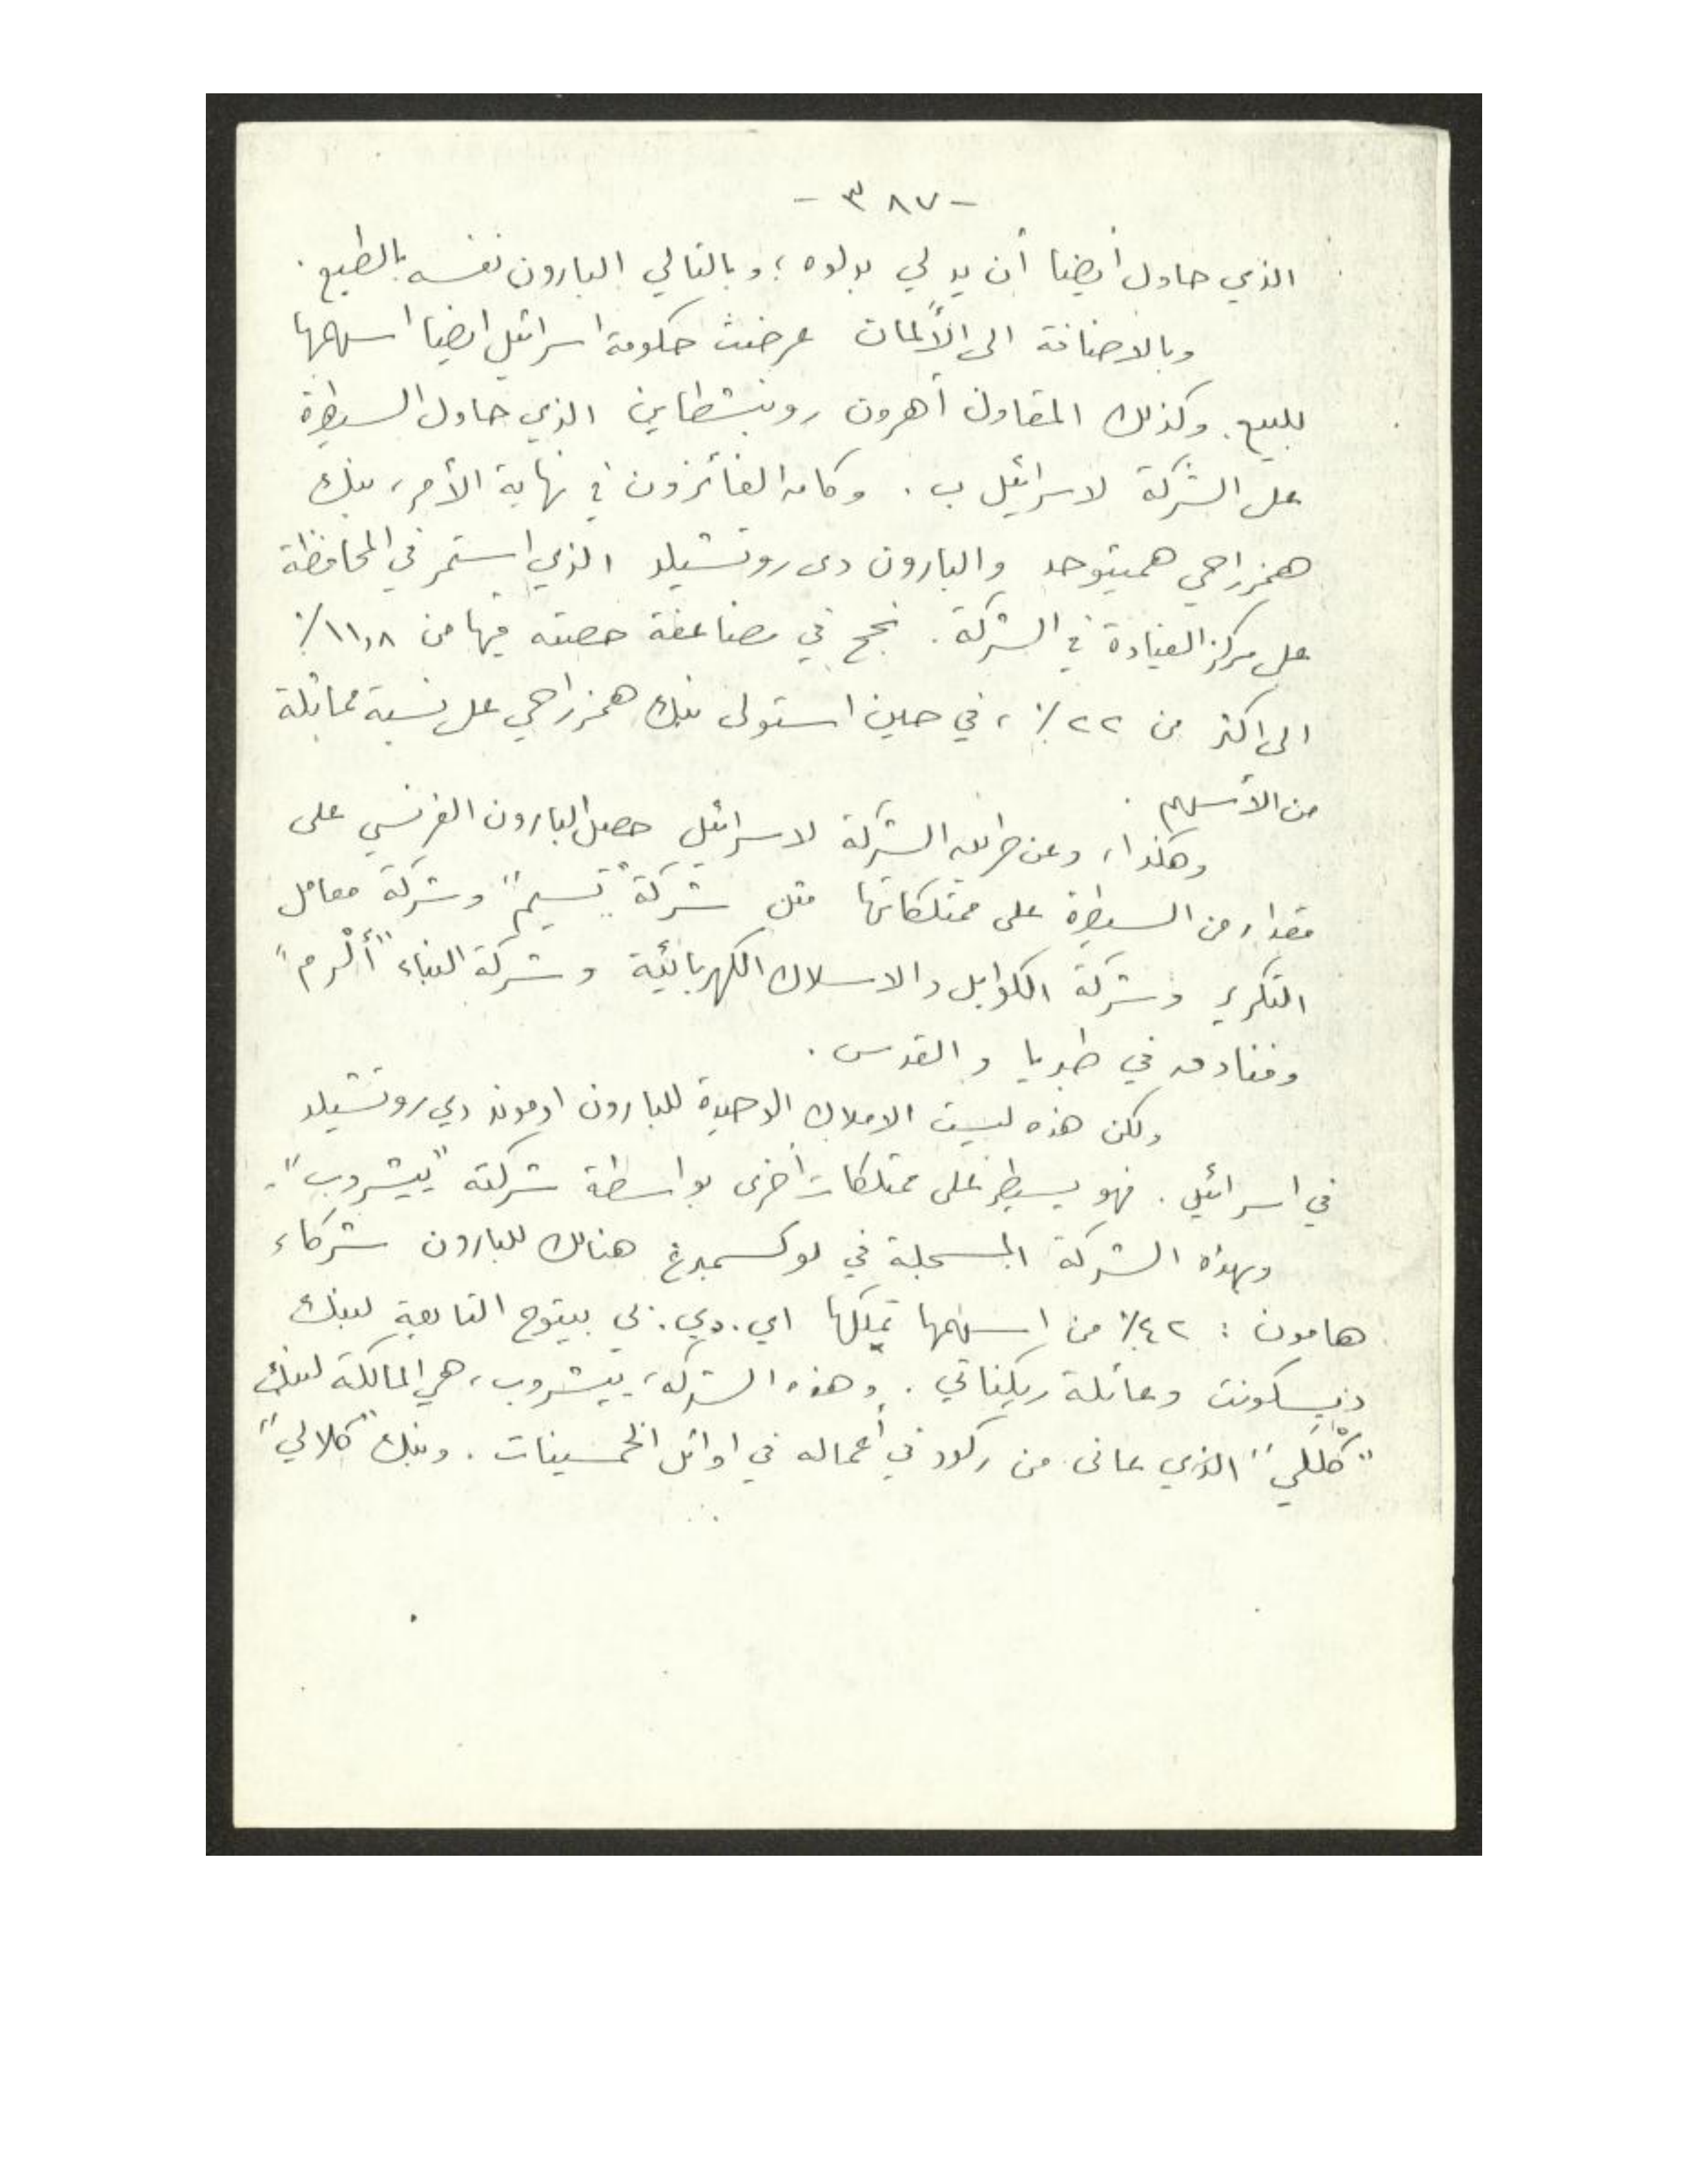 - ٣٨٧ -
الذي حاول أيضا أن يدلي بدلوه ؛ وبالتالي البارون نفسه بالطبع .
وبالاضافة الى الألمان عرضت حكومة اسرائيل ايضا اسهمها
للبيع . وكذلك المقاول أهرون روبنشطاين الذي حاول السيطرة
على الشركة لاسرائيل ب . وكان الفائزون في نهاية الأمر ، بنك
همزراحي همیئوحد والبارون دى روتشيلد الذي استمر في المحافظة
على مركز القيادة في الشركة . نجح في مضاعفة حصته فيها من ١١,٨٪
الى اكثر من ٢٢٪ ، في حين استولى بنك همزراحي على نسبة مماثلة
من الأسهم .
وهكذا ، وعن طريق الشركة لاسرائيل حصل البارون الفرنسي على
مقدار من السيطرة على ممتلكاتها مثل شركة "تسيم" وشركة معامل
التكرير وشركة الكوابل والاسلاك الكهربائية وشركة البناء "أكرم"
وفنادق في طبريا و القدس .
ولكن هذه ليست الاملاك الوحيدة للبارون ادموند دي روتشيلد
في اسرائيل . فهو يسيطر على ممتلكات أخرى بواسطة شركته "ييشروب" .
وبهذه الشركة المسجلة في لوكسمبرغ هنالك للبارون شركاء
هامون : ٤٢٪ من اسهمها تملكها اي . دي . بي بيتوح التابعة لبنك
ديسكونت وعائلة ريكناتي . وهذه الشركة ، ييشروب ، هي المالكة لبنك
"كللي" الذي عانى من ركود في أعماله في اوائل الخمسينات . وبنك "كلالي"